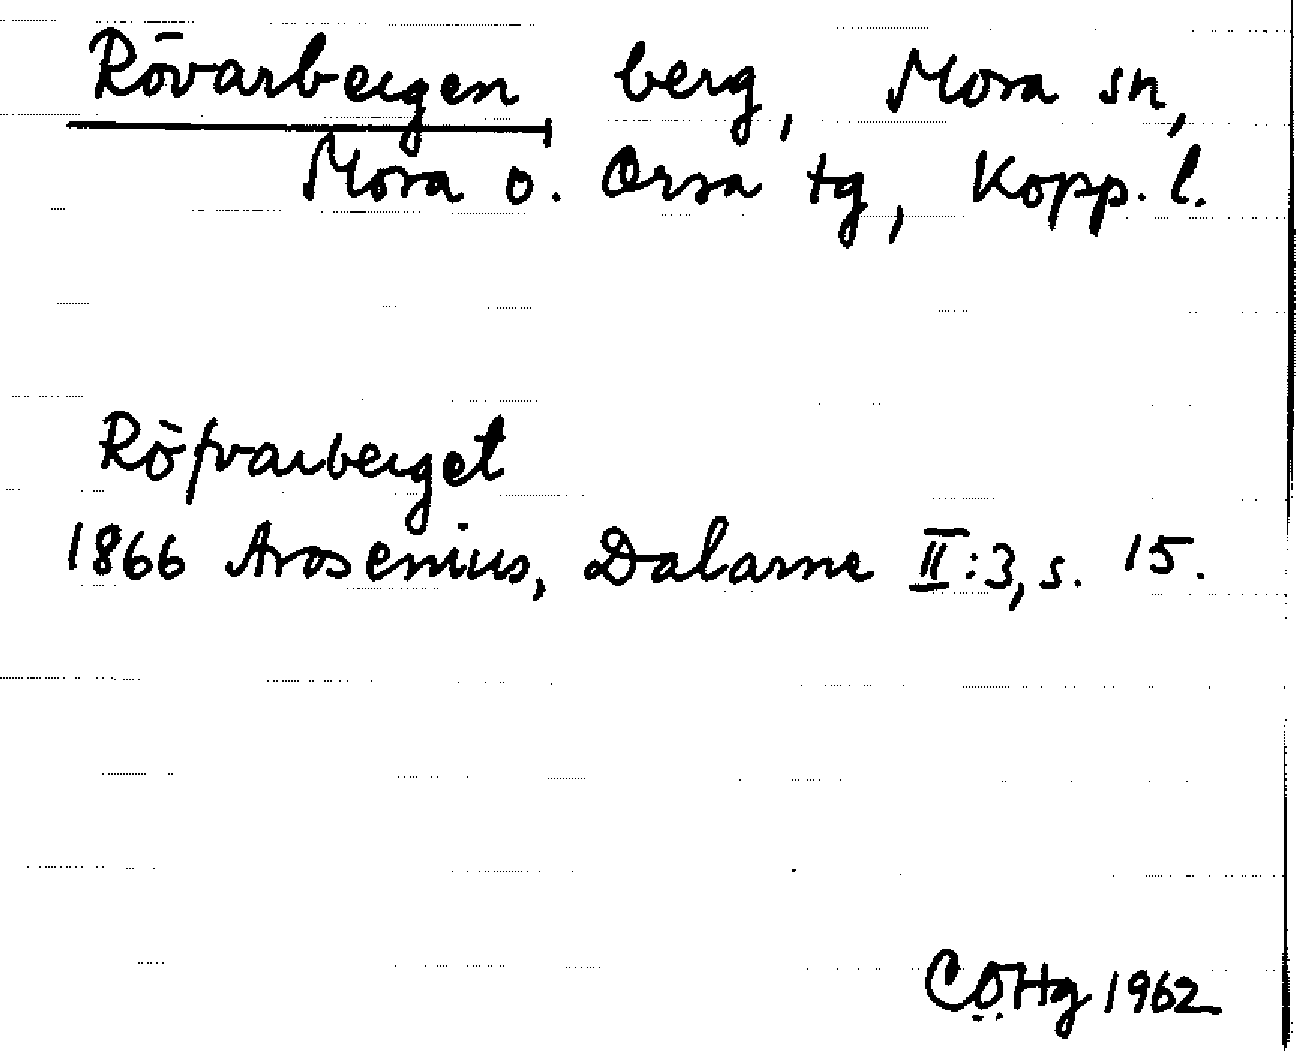 Rövarbergen berg, Mora sn,
Mora o. Orsa tg, Kopp. l.
Röfvarberget
1866 Arosenius, Dalarne II:3, s. 15.
CÖHg 1962